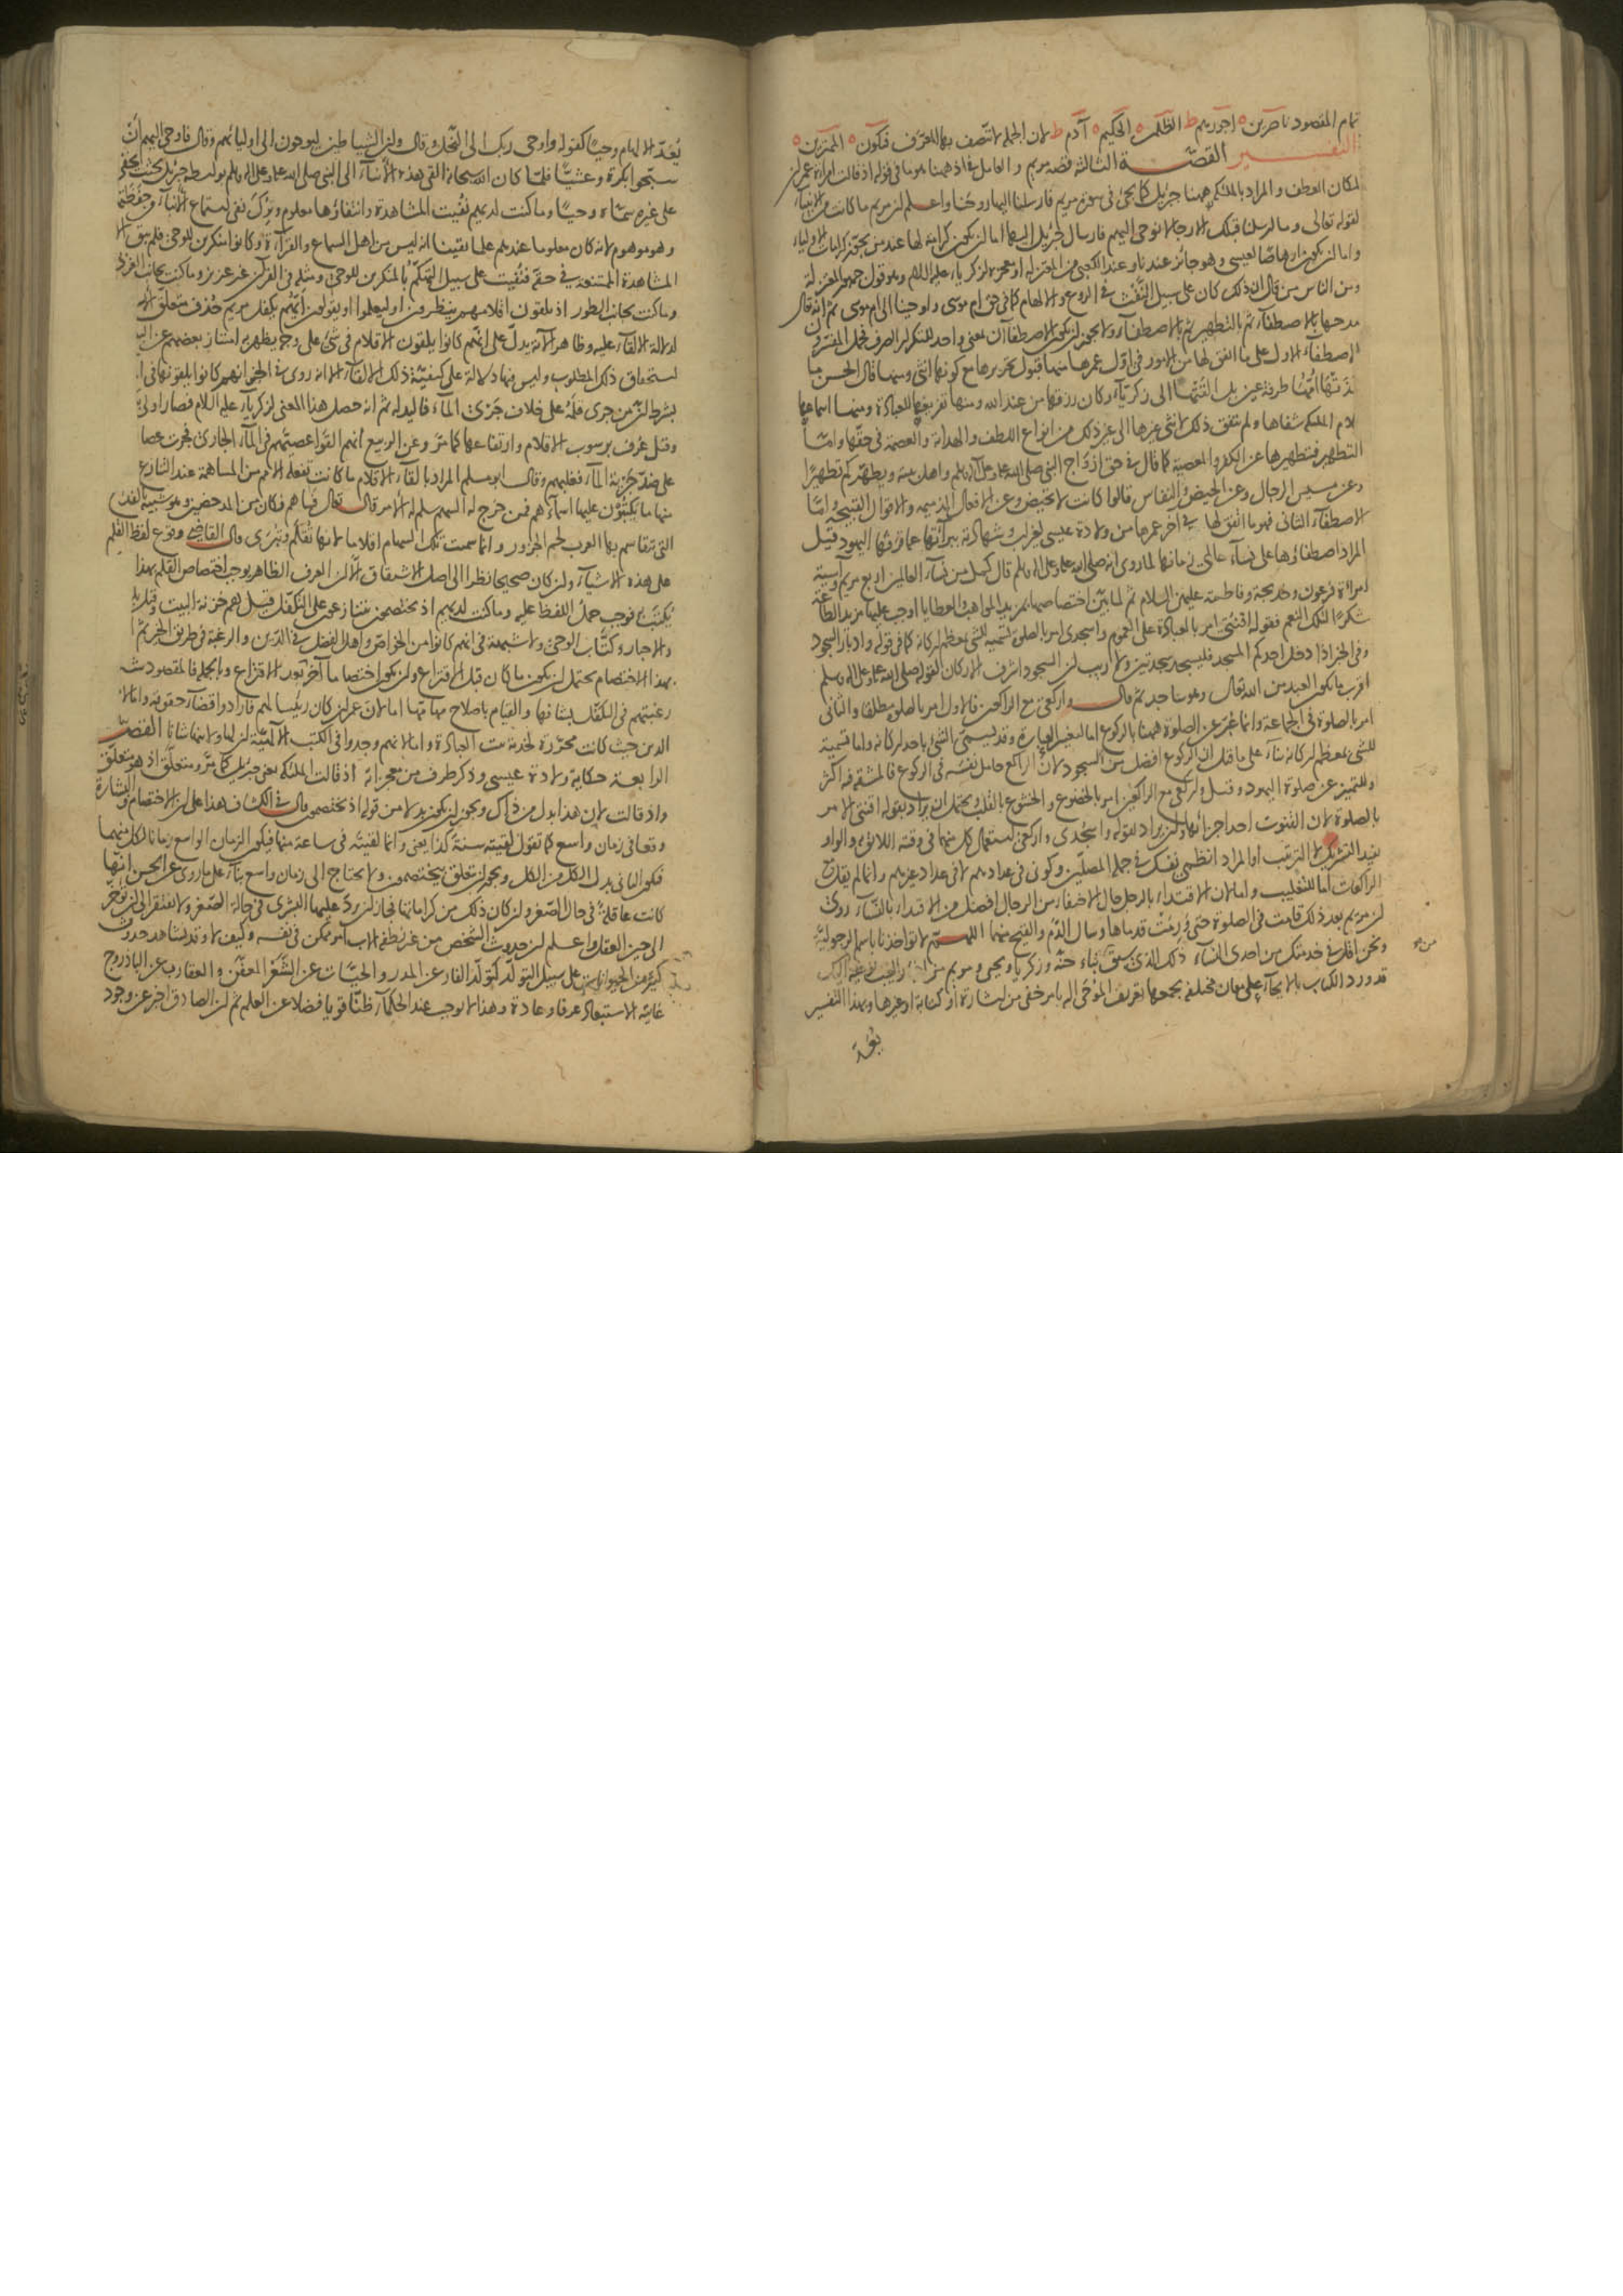 تمام المقصود ناصرين ه اجورهم ط الظلمين ه الحكيم ه آدم ط لان الجملة لا تتصف بها المعرف فيكون ه الممترين ه
التفسير القصة الثالثة قصة مريم والعامل في اذ ههنا هو ما في قوله اذ قالت امراة عمران
لمكان العطف والمراد بالملئكة ههنا جبرئيل كما يجئ في سورة مريم فارسلنا اليها روحنا واعلم ان مريم ما كانت من الانبياء
لقوله تعالى وما ارسلنا قبلك الا رجالا نوحي اليهم فارسال جبرئيل اليها اما ان يكون كرامة لها عند من يجوز كرامات الاولياء
واما ان يكون ارهاصا لعيسى وهو جائز عندنا وعند الكعبي من المعتزلة او معجزة لزكرياء عليه السلام وهو قول جمهور المعتزلة
ومن الناس من قال ان ذلك كان على سبيل النفث في الروع والالهام كما في حق ام موسى واوحينا الى ام موسى ثم انه قال
مدحها بالاصطفاء ثم بالتطهير ثم بالاصطفاء ولا يجوز ان يكون الاصطفاآن بمعنى واحد للتكرار الصرف فحمل المفسرون
الاصطفاء الاول على ما اتفق لها من الامور في اول عمرها منها قبول تحريرها مع كونها انثى ومنها قال الحسن ما
غذتها امها طرفة عين بل القتها الى زكرياء وكان رزقها من عند الله ومنها تفريغها للعبادة ومنها اسماعها
كلام الملئكة شفاها ولم يتفق ذلك لانثى غيرها الى غير ذلك من انواع اللطف والهداية والعصمة في حقها واما
التطهير فتطهيرها عن الكفر والمعصية كما قال في حق ازواج النبي صلى الله عليه وعلى آله وسلم واهل بيته ويطهركم تطهيرا
وعن مسيس الرجال وعن الحيض والنفاس قالوا كانت لا تحيض وعن الافعال الذميمة والاقوال القبيحة واما
الاصطفاء الثاني فهو ما اتفق لها في آخر عمرها من ولادة عيسى بغير اب وشهادته ببرائتها عما قرفها اليهود قيل
المراد اصطفاؤها على نساء عالمي زمانها لما روي انه صلى الله عليه وعلى آله وسلم قال كمل من نساء العالمين اربع مريم وآسية
امراة فرعون وخديجة وفاطمة عليهن السلام ثم لما بين اختصاصها بمزيد المواهب والعطايا اوجب عليها مزيد الطاعة
شكرا لتلك النعم فقوله اقنتي امر بالعبادة على العموم واسجدي امر بالصلوة تسمية للشئ بمعظم اركانه كما في قوله وادبار السجود
وفي الخبر اذا دخل احدكم المسجد فليسجد سجدتين ولا ريب ان السجود اشرف الاركان لقوله صلى الله عليه وعلى آله وسلم
اقرب ما يكون العبد من الله تعالى وهو ساجد ثم قال واركعي مع الراكعين فالاول امر بالصلوة مطلقا والثاني
امر بالصلوة في الجماعة وانما عبر عن الصلوة ههنا بالركوع اما لتغيير العبارة وقد يسمى الشئ باحد اركانه واما تسمية
للشئ بمعظم اركانه بناء على ما قيل ان الركوع افضل من السجود لان الراكع حامل نفسه في الركوع فالمشقة فيه اكثر
وللتميز عن صلوة اليهود وقيل واركعي مع الراكعين امر بالخضوع والخشوع بالقلب ويحتمل ان يراد بقوله اقنتي الامر
بالصلوة لان القنوت احد اجزائها وان يراد بقوله واسجدي واركعي استعمال كل منهما في وقته اللائق به والواو
تفيد التشريك لا الترتيب او المراد انظمي نفسك في جملة المصلين وكوني في عدادهم لا في عداد غيرهم وانما لم يقل مع
الراكعات اما للتغليب واما لان الاقتداء بالرجال حال الاختفاء من الرجال افضل من الاقتداء بالنساء روي
ان مريم بعد ذلك قامت في الصلوة حتى ورمت قدماها وسال الدم والقيح منهما اللهم لا تؤاخذنا باسم الرجولية
ونحن اقل في خدمتك من احدى النساء ذلك الذي سبق انباء حنة وزكريا ويحيى ومريم من انباء الغيب نوحيه اليك
قد ورد الكتاب بالايحاء على معان مختلفة يجمعها تعريف الموحى اليه بامر خفي من اشارة او كتابة او غيرها وبهذا التفسير
يعد
يعد الالهام وحيا كقوله واوحى ربك الى النحل وقال وان الشياطين ليوحون الى اوليائهم وقال فاوحى اليهم ان
سبحوا بكرة وعشيا فلما كان الله سبحانه القى هذه الانباء الى النبي صلى الله عليه وعلى آله وسلم بواسطة جبرئيل بحيث يخفى
على غيره سماه وحيا وما كنت لديهم نفيت المشاهدة وانتفاؤها معلوم وترك نفي استماع الانباء من حفظتها
وهو موهوم لانه كان معلوما عندهم علما يقينا انه ليس من اهل السماع والقراءة وكانوا منكرين للوحي فلم يبق الا
المشاهدة الممتنعة في حقه فنفيت على سبيل التهكم بالمنكرين للوحي ومثله في القرآن غير عزيز وما كنت بجانب الغربي
وما كنت بجانب الطور اذ يلقون اقلامهم ينظرون او ليعلموا او يقولون ايهم يكفل مريم حذف متعلق الاستفهام
لدلالة الالقاء عليه وظاهر الآية يدل على انهم كانوا يلقون الاقلام في شئ على وجه يظهر به امتياز بعضهم عن البعض
استحقاق ذلك المطلوب وليس فيها دلالة على كيفية ذلك الالقاء الا انه روي في الخبر انهم كانوا يلقونها في الماء
بشرط ان من جرى قلمه على خلاف جري الماء فاليد له ثم انه حصل هذا المعنى لزكرياء عليه السلام فصار اولى
وقيل عرف برسوب الاقلام وارتفاعها كما مر وعن الربيع انهم القوا عصيهم في الماء الجاري فجرت عصا
على ضد جرية الماء فغلبهم وقال ابو مسلم المراد بالقاء الاقلام ما كانت تفعله الامم من المساهمة عند التنازع
منها ما يكتبون عليها اسماءهم فمن خرج له السهم سلم له الامر قال تعالى فساهم فكان من المدحضين وهو شبيه بالقداح
التي تتقاسم بها العرب لحم الجزور وانما سميت تلك السهام اقلاما لانها تقلم وتبرى قال القاضي وقوع لفظ القلم
على هذه الاشياء وان كان صحيحا نظرا الى اصل الاشتقاق الا ان العرف الظاهر يوجب اختصاص القلم بهذا
يكتب به فوجب حمل اللفظ عليه وما كنت لديهم اذ يختصمون يتنازعون على التكفل قيل هم خزنة البيت وقيل
والاحبار وكتاب الوحي ولا شبهة في انهم كانوا من الخواص واهل الفضل في الدين والرغبة في طريق الخير ثم
هذا الاختصام يحتمل ان يكون ما كان قبل الاقتراع وان يكون اختصاما آخر بعد الاقتراع وبالجملة فالمقصود شدة
رغبتهم في التكفل بشانها والقيام باصلاح مهماتها اما لان عمران كان رئيسا لهم فارادوا قضاء حقوقه واما لان
الدين حيث كانت محررة لخدمة بيت العبادة واما لانهم وجدوا في الكتب الآلهية ان لها ولابنها شانا القصة
الرابعة حكاية ولادة عيسى وذكر طرف من معجزاته اذ قالت الملئكة يعني جبرئيل كما مر ومتعلق اذ هو متعلق
واذ قالت لان هذا بدل من ذاك ويجوز ان يكون بدلا من قوله اذ يختصمون قال في الكشاف هذا على ان الاختصام والبشارة
وقعا في زمان واسع كما تقول لقيته سنة كذا يعني وانما لقيته في ساعة منها فيكون الزمان الواسع زمانا لكل منهما
فيكون الثاني بدل الكل من الكل ويجوز ان تعلق بيختصمون ولا يحتاج الى زمان واسع بناء على ما روي عن الحسن انها
كانت عاقلة في حال الصغر وان كان ذلك من كراماتها فجاز ان يرد عليها البشرى في حالة الصغر ولا يفتقر الى ان يؤخر
الى حين العقل واعلم ان حدوث الشخص من غير نطفة الاب امر ممكن في نفسه وكيف لا وقد نشاهد حدوث
كثير من الحيوانات على سبيل التولد كتولد الفار عن المدر والحيات عن الشعر المعفن والعقارب عن الباذروج
غايته الاستبعاد عرفا وعادة وهذا لا يوجب عند الحكماء ظنا قويا فضلا عن العلم ثم ان الصادق اخبر عن وجود